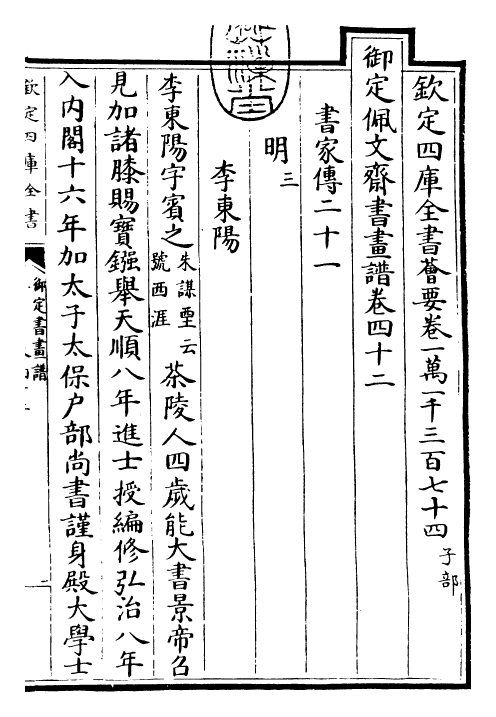 欽定四庫全書薈要卷一萬一千三百七十四 子部
御定佩文齋書畫譜卷四十二
書家傳二十一
明三
李東陽
李東陽字賓之朱謀垔云號西涯茶陵人四歲能大書景帝召
見加諸膝賜寶鏹舉天順八年進士授編修弘治八年
入內閣十六年加太子太保户部尚書謹身殿大學士
欽定四庫全書
御定書畫譜